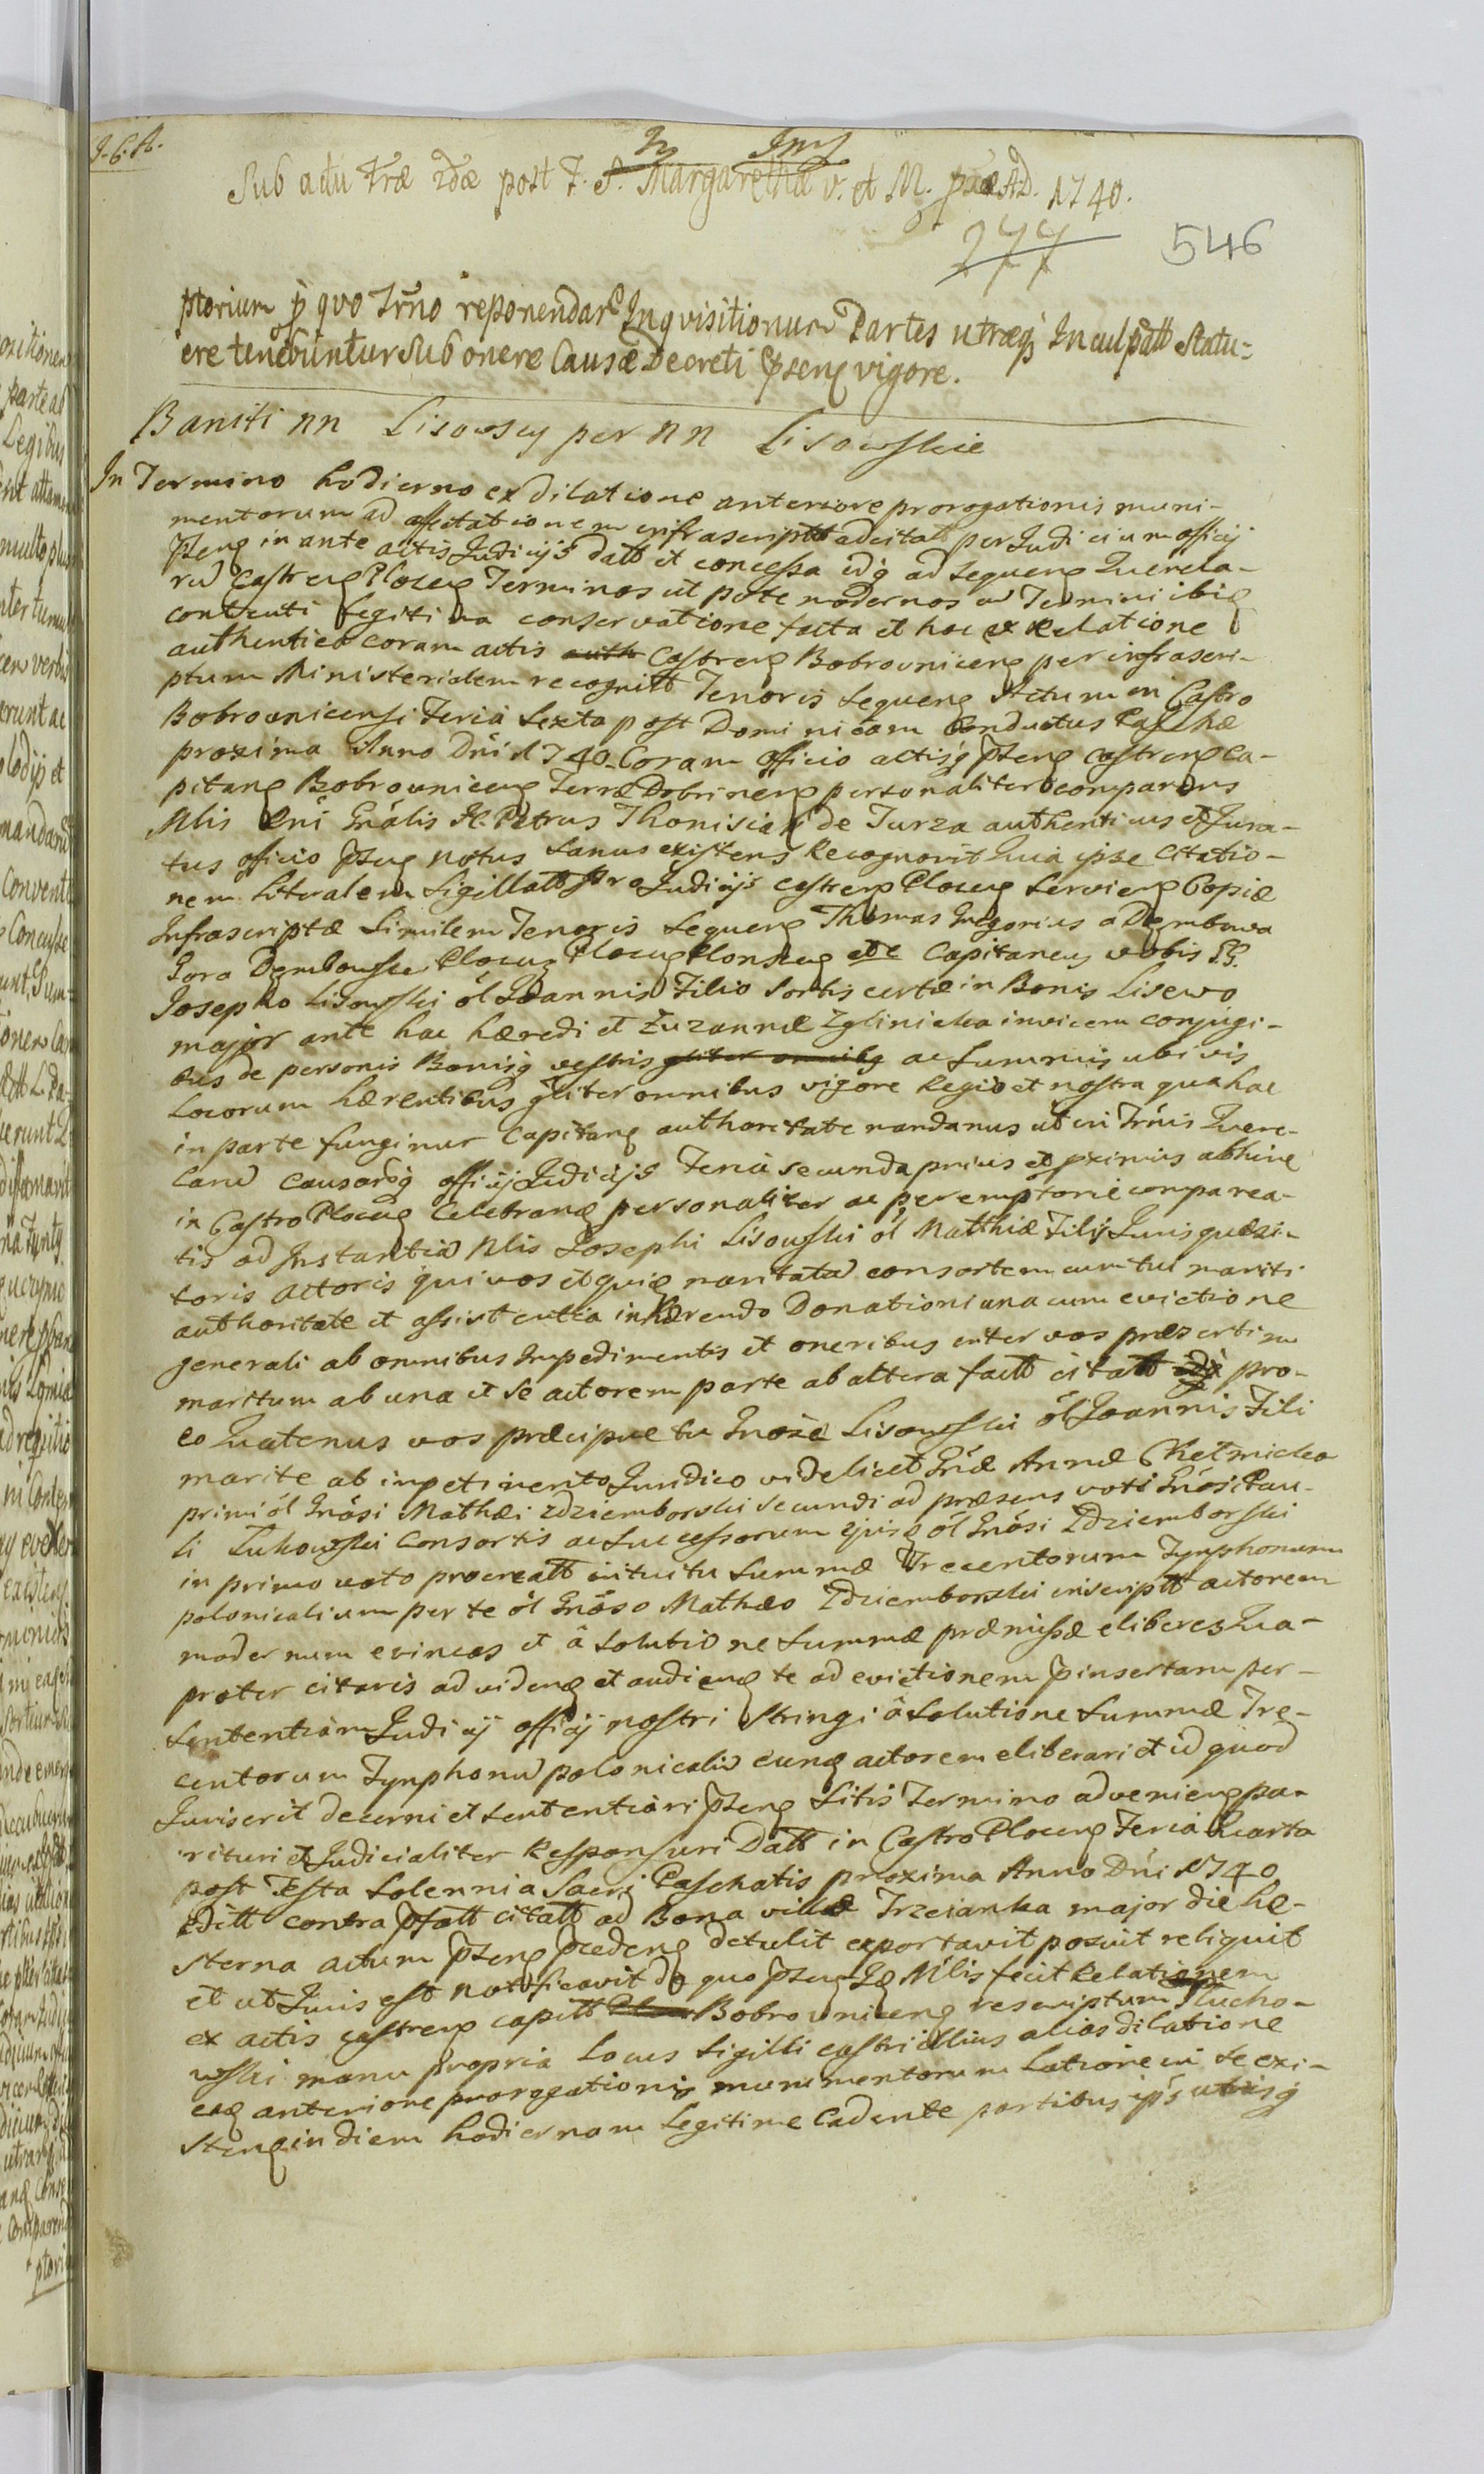 J. G. A.
Sub actu Fr̃æ 2dæ post F. S. Margarethæ v. et M. pxæ A.D. 1740.
277 546
ptorium p̄ quo Tr̃no reponendar̃ Inqvisitionum Partes utræq; Inculpatt Statu=
ere tenebuntur Sub onere Causæ Decreti p̄seng vigore.
Baniti nn Lisowscy per nn Lisowskie
In Termino hodierno ex dilatione anteriore prorogationis muni-
mentorum ad affectationem infrascriptt adcitatt per Judicium officij
p̄seng in ante actis Judicijs datt et concessa idq̃ ad sequeng Querela-
rũ Castreng Ploceng Terminos ut pote modernos
contenti legitima conservatione facta et hac ex Relatione
authentico coram actis Castreng Bobrovniceng per infrascri-
ptum Ministerialem recognitt Tenoris sequeng Actum in Castro
Bobrovnicensi Feria Sexta post Dominicam Conductus Paschæ
proxima Anno Dñi 1740. Coram officio actisq̃ p̄seng castreng Ca-
pitang Bobrovniceng Terræ Dobrineng personaliter comparens
Mlis Gñalis Petrus Thonisiak de Turza authenticus et Jura-
tus officio p̄seng notus sanus existens Recognovit Quia ipse Citatio-
nem literalem Sigillatt pro Judicijs castreng Ploceng Servieng Copiæ
Infrascriptæ Similem Tenoris sequeng Thomas Gregorius a Dembowa
Gora Dembowski Ploceng Ploceng Plonseng etc Capitaneus vobis
Josepho Lisowski ol Joannis Filio Sortis certæ in Bonis Lisewo
major ante hac hæredi et Zuzannæ Zglinicka invicem conjugi-
bus de personis Bonisq̃ vestris gliter omnibg ac Summis ubivis
Locorum hærentibus gliter omnibus vigore Regio et nostra qua hac
in parte fungimur Capitang authoritate mandamus ut in Tr̃nis Quere-
larũ Causarq̃ officij Judicijs Feria secunda prius et pximis abhinc
in Castro Ploceng Celebrang personaliter ac peremptorie comparea-
tis ad Instantiã Nlis Josephi Lisowski ol Matthiæ Filij Juris quæsi-
toris actoris qui vos et quiq maritatũ consortem cum tui mariti
authoritate et assistentia inhærendo Donationi una cum evictione
generali ab omnibus Impedimentis et oneribus inter vos præsertim
maritum ab una et se actorem parte ab altera factt citatt pro-
eo Quatenus vos præcipue tu Gnose Lisowski ol Joannis Fili
marite ab impetimento Juridico videlicet Gñæ Annæ Chełmicka
primi ol Gnosi Mathæi Zdziemborski secundi ad præsens voti Gnosi Pau-
li Łukowski Consortis ac Successorum ejusq ol Gnosi Zdziemborski
in primo voto procreatt intuitu Summæ Trecentorum Tynphonum
polonicalium per te ol Gnoso Mathæo Zdziemborski inscriptt actorem
modernum evincas et â Solutione Summæ præmissæ eliberes Qua-
propter citaris ad videng et audieng te ad evictionem p̄insertam per-
Sententiam Judicij officij nostri Stringi â Solutione Summæ Tre-
centorum Tynphonũ polonicaliũ eung actorem eliberari et id quod
Juris erit decerni et Sententiari p̄seng Litis Termino advenieng pa-
rituri et Judicialiter Responsuri Datt in Castro Ploceng Feria Quarta
post Festa Solennia Sacri Paschatis proxima Anno Dñi 1740
Editt contra p̄fatt citatt ad Bona villæ Trzcianka major die he-
sterna actum p̄seng p̄cedeng detulit exportavit posuit reliquit
et ut Juris est notificavit de quo p̄seng Mlis fecit Relationem
ex actis castreng capitt Bobrovniceng rescriptum Słucho-
wski manu propria Locus Sigilli castri illius alias dilatione
eag anteriore prorogationis munimentorum Latione in se exi-
steng in diem hodiernam Legitime Cadente partibus ip̃s utrisq̃